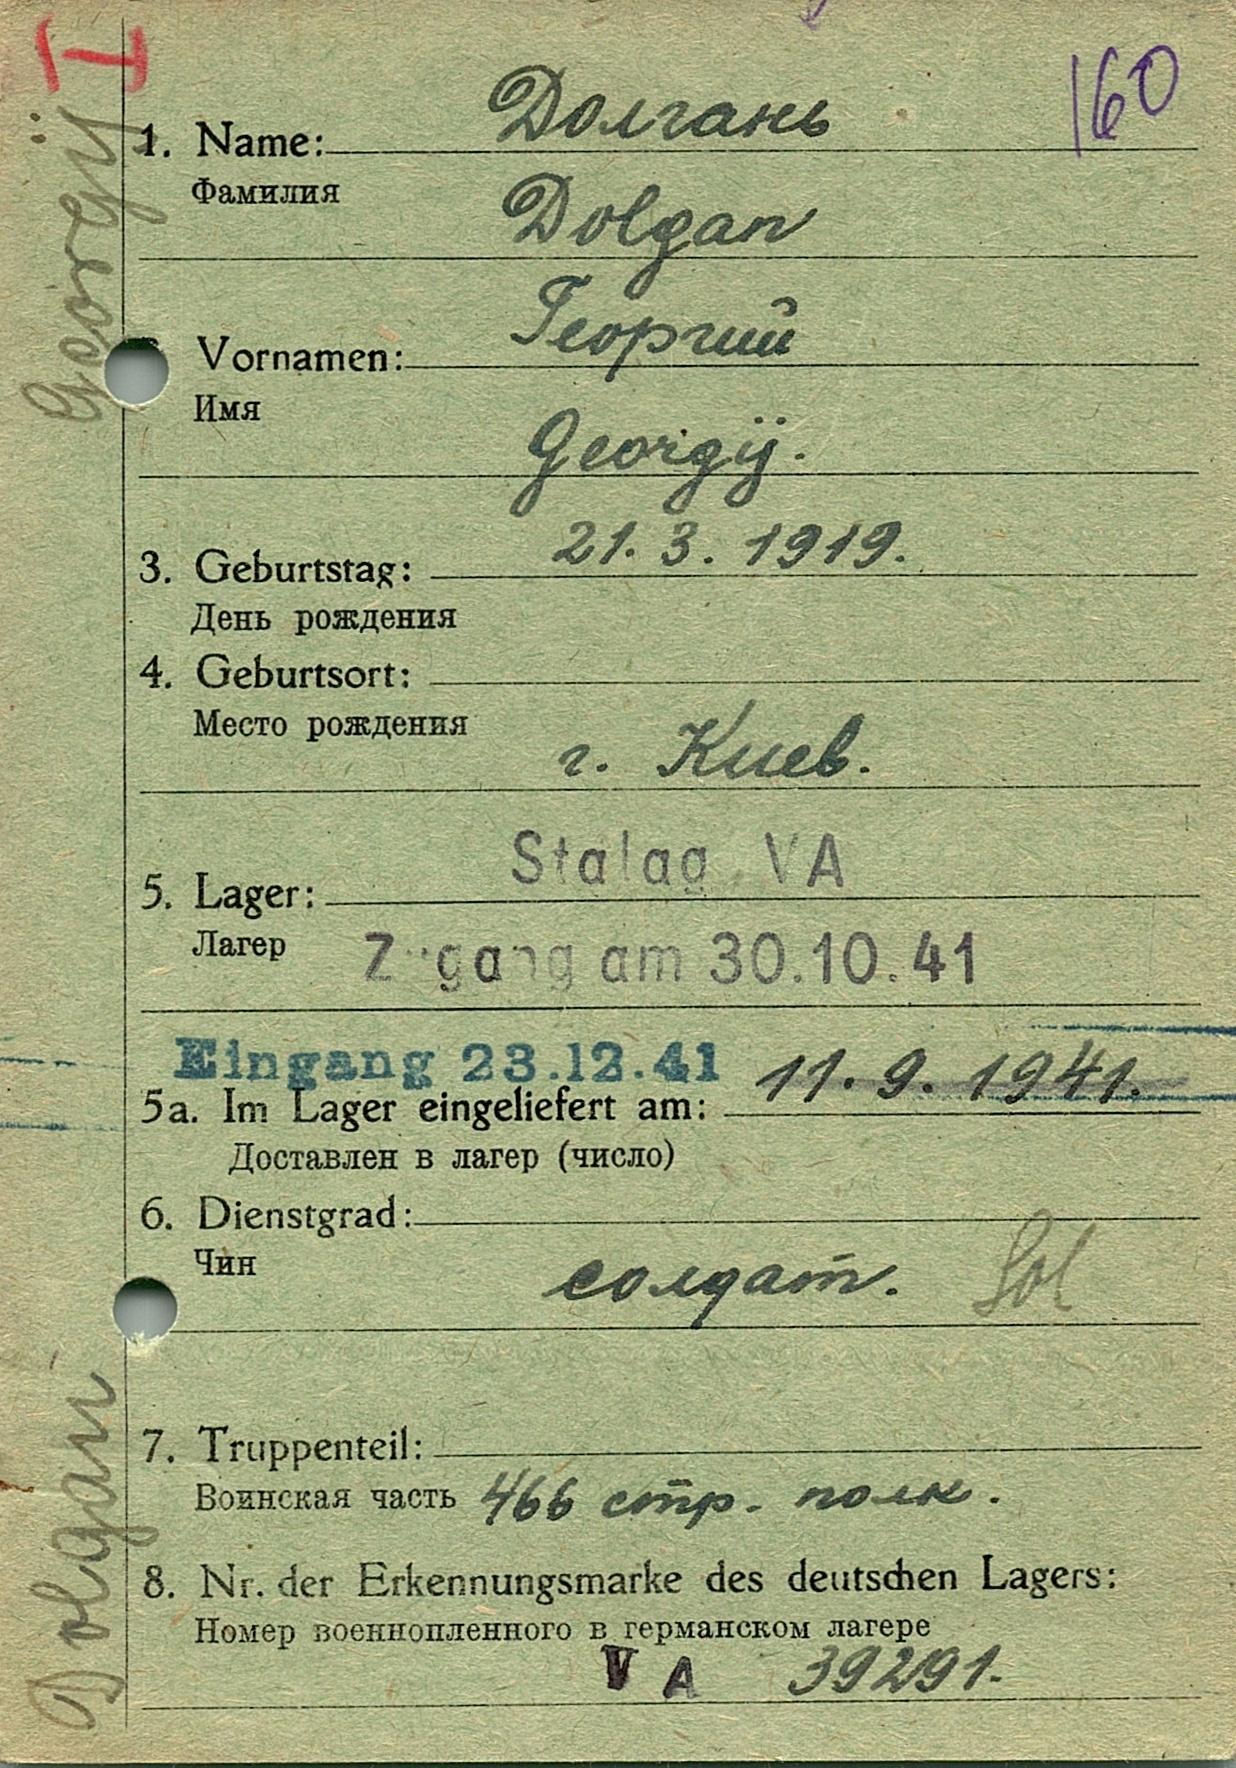 I
160
1. Name: Долгань
Фамилия
Dolgan
Vornamen: Георгий
Имя
Georgij.
3. Geburtstag: 21. 3. 1919.
День рождения
4. Geburtsort:
Место рождения
г. Киев.
Stalag VA
5. Lager:
Лагер
Zugang am 30.10.41
Eingang 23.12.41
5a. Im Lager eingeliefert am: 11. 9. 1941.
Доставлен в лагер (число)
6. Dienstgrad:
Чин
солдат. Sol
7. Truppenteil:
Воинская часть 466 стр. полк.
8. Nr. der Erkennungsmarke des deutschen Lagers:
Номер военнопленного в германском лагере
V A 39291.
Dolgan Georgij